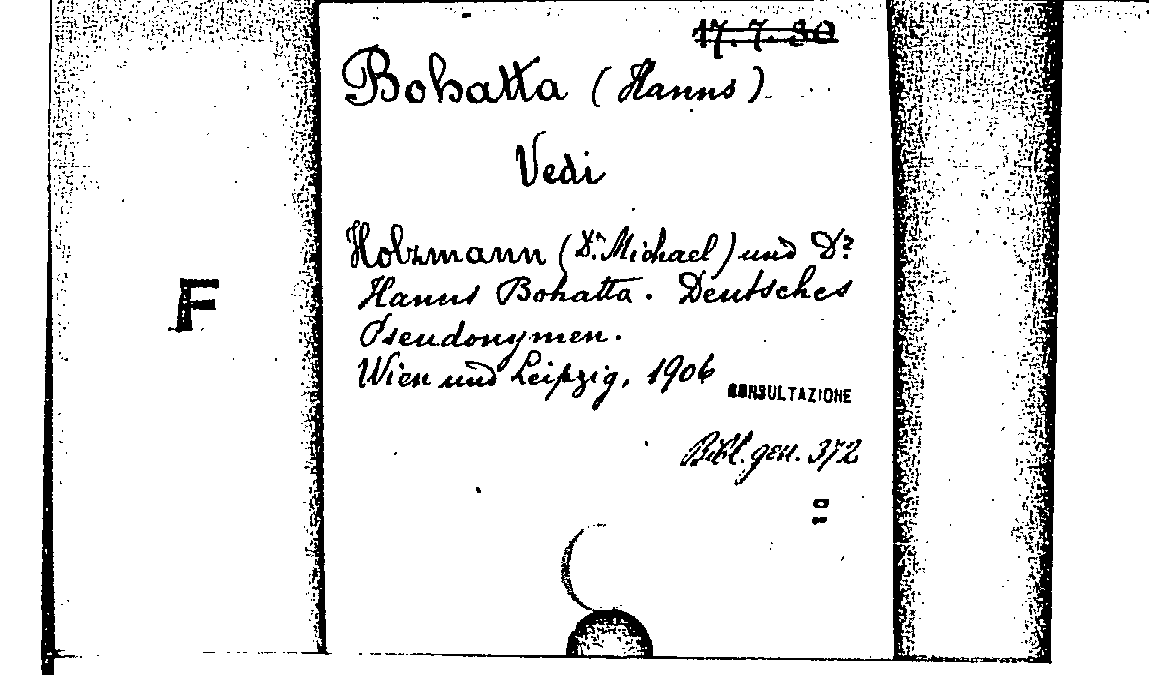 17.7.30
Bohatta (Hanns)
Vedi
Holzmann (Dr. Michael) und Dr.
Hanns Bohatta. Deutsches
Pseudonymen.
Wien und Leipzig, 1906
CONSULTAZIONE
Bibl. gen. 372
F